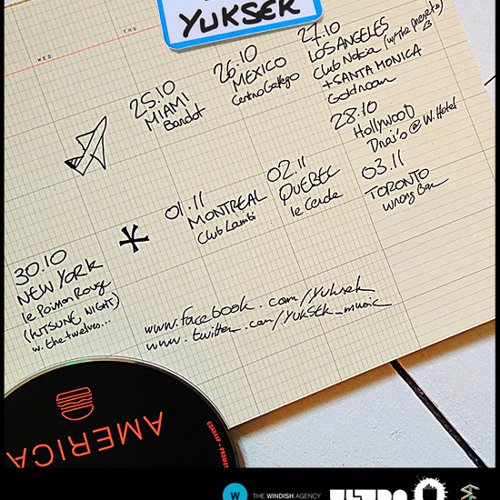 YUKSEK
WED
THU
25.10
MIAMI
Bardot
26.10
MEXICO
Centro Gallego
27.10
LOS ANGELES
Club Nokia (w/The Magnetz)
+ SANTA MONICA
Goldroom
28.10
HOLLYWOOD
@ W. Hotel
30.10
NEW YORK
le Poisson Rouge
(KITSUNE NIGHT)
w. the twelves...
01.11
MONTREAL
Club Lambi
02.11
QUEBEC
le Cercle
03.11
TORONTO
Wrong Bar
www.facebook.com/Yuksek
www.twitter.com/YUKSEK_music
AMERICA
W THE WINDISH AGENCY
ULTRA